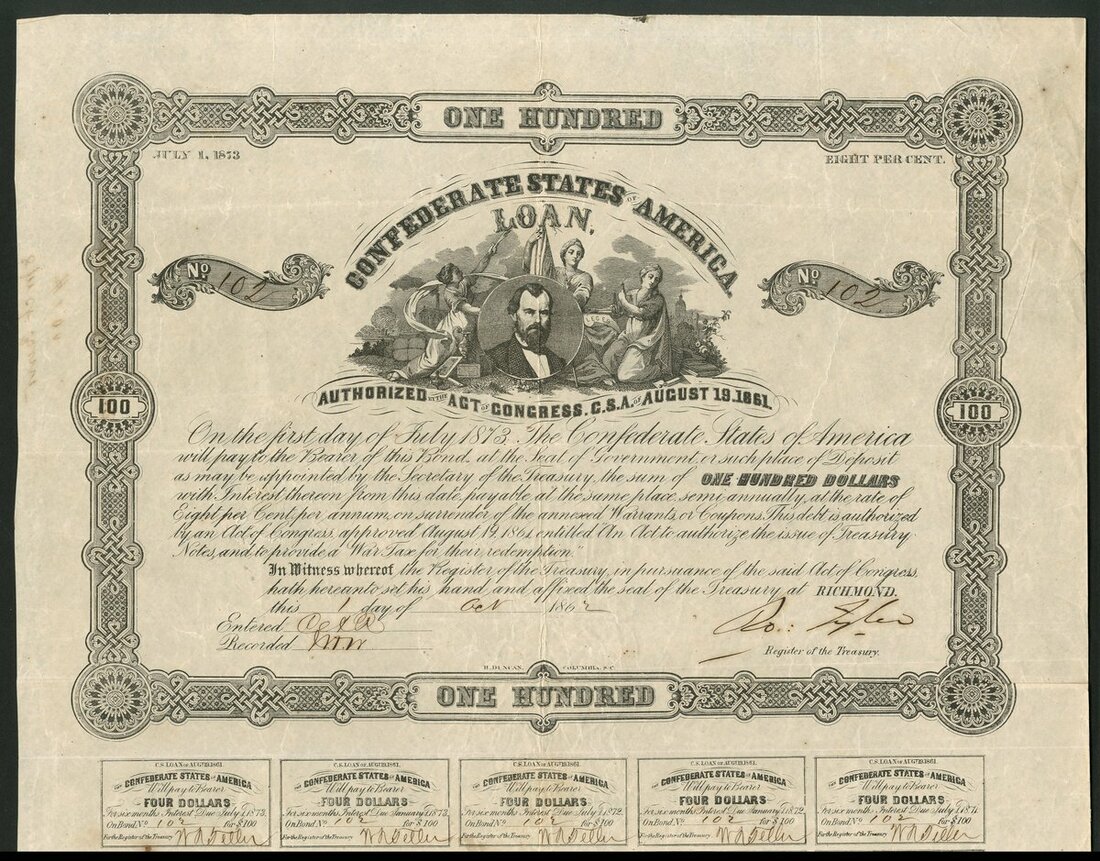 ONE HUNDRED
JULY 1, 1873
EIGHT PER CENT.
CONFEDERATE STATES OF AMERICA
LOAN,
No 102
No 102
AUTHORIZED BY THE ACT OF CONGRESS, C.S.A. OF AUGUST 19.1861.
100
100
On the first day of July 1873. The Confederate States of America
will pay to the Bearer of this Bond, at the Seat of Government, or such place of Deposit
as may be appointed by the Secretary of the Treasury, the sum of ONE HUNDRED DOLLARS
with Interest thereon from this date, payable at the same place, semi-annually, at the rate of
Eight per Cent, per annum, on surrender of the annexed Warrants, or Coupons. This debt is authorized
by an Act of Congress, approved August 19, 1861, entitled "An Act to authorize the issue of Treasury
Notes, and to provide a War Tax for their redemption."
In Witness whereof, the Register of the Treasury, in pursuance of the said Act of Congress,
hath hereunto set his hand and affixed the seal of the Treasury at RICHMOND.
this 1 day of Oct 1862
Entered
Recorded
Ro: Tyler
Register of the Treasury.
H. DUNCAN, COLUMBIA, S.C.
ONE HUNDRED
C.S. LOAN OF AUG. 19.1861.
CONFEDERATE STATES OF AMERICA
Will pay to Bearer
FOUR DOLLARS
For six months Interest Due July 1, 1873.
On Bond No. 102 for $100
For the Register of the Treasury
C.S. LOAN OF AUG. 19.1861.
CONFEDERATE STATES OF AMERICA
Will pay to Bearer
FOUR DOLLARS
For six months Interest Due January 1, 1873.
On Bond No. 102 for $100
For the Register of the Treasury
C.S. LOAN OF AUG. 19.1861.
CONFEDERATE STATES OF AMERICA
Will pay to Bearer
FOUR DOLLARS
For six months Interest Due July 1, 1872.
On Bond No. 102 for $100
For the Register of the Treasury
C.S. LOAN OF AUG. 19.1861.
CONFEDERATE STATES OF AMERICA
Will pay to Bearer
FOUR DOLLARS
For six months Interest Due January 1, 1872
On Bond No. 102 for $100
For the Register of the Treasury
C.S. LOAN OF AUG. 19.1861.
CONFEDERATE STATES OF AMERICA
Will pay to Bearer
FOUR DOLLARS
For six months Interest Due July 1, 1871.
On Bond No. 102 for $100
For the Register of the Treasury